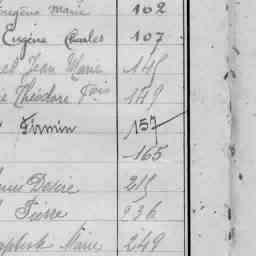 Marie 102
Eugène Charles 107
Jean Marie 145
Théodore Fois 149
Firmin 157
165
Désiré 215
Pierre 236
Marie 249